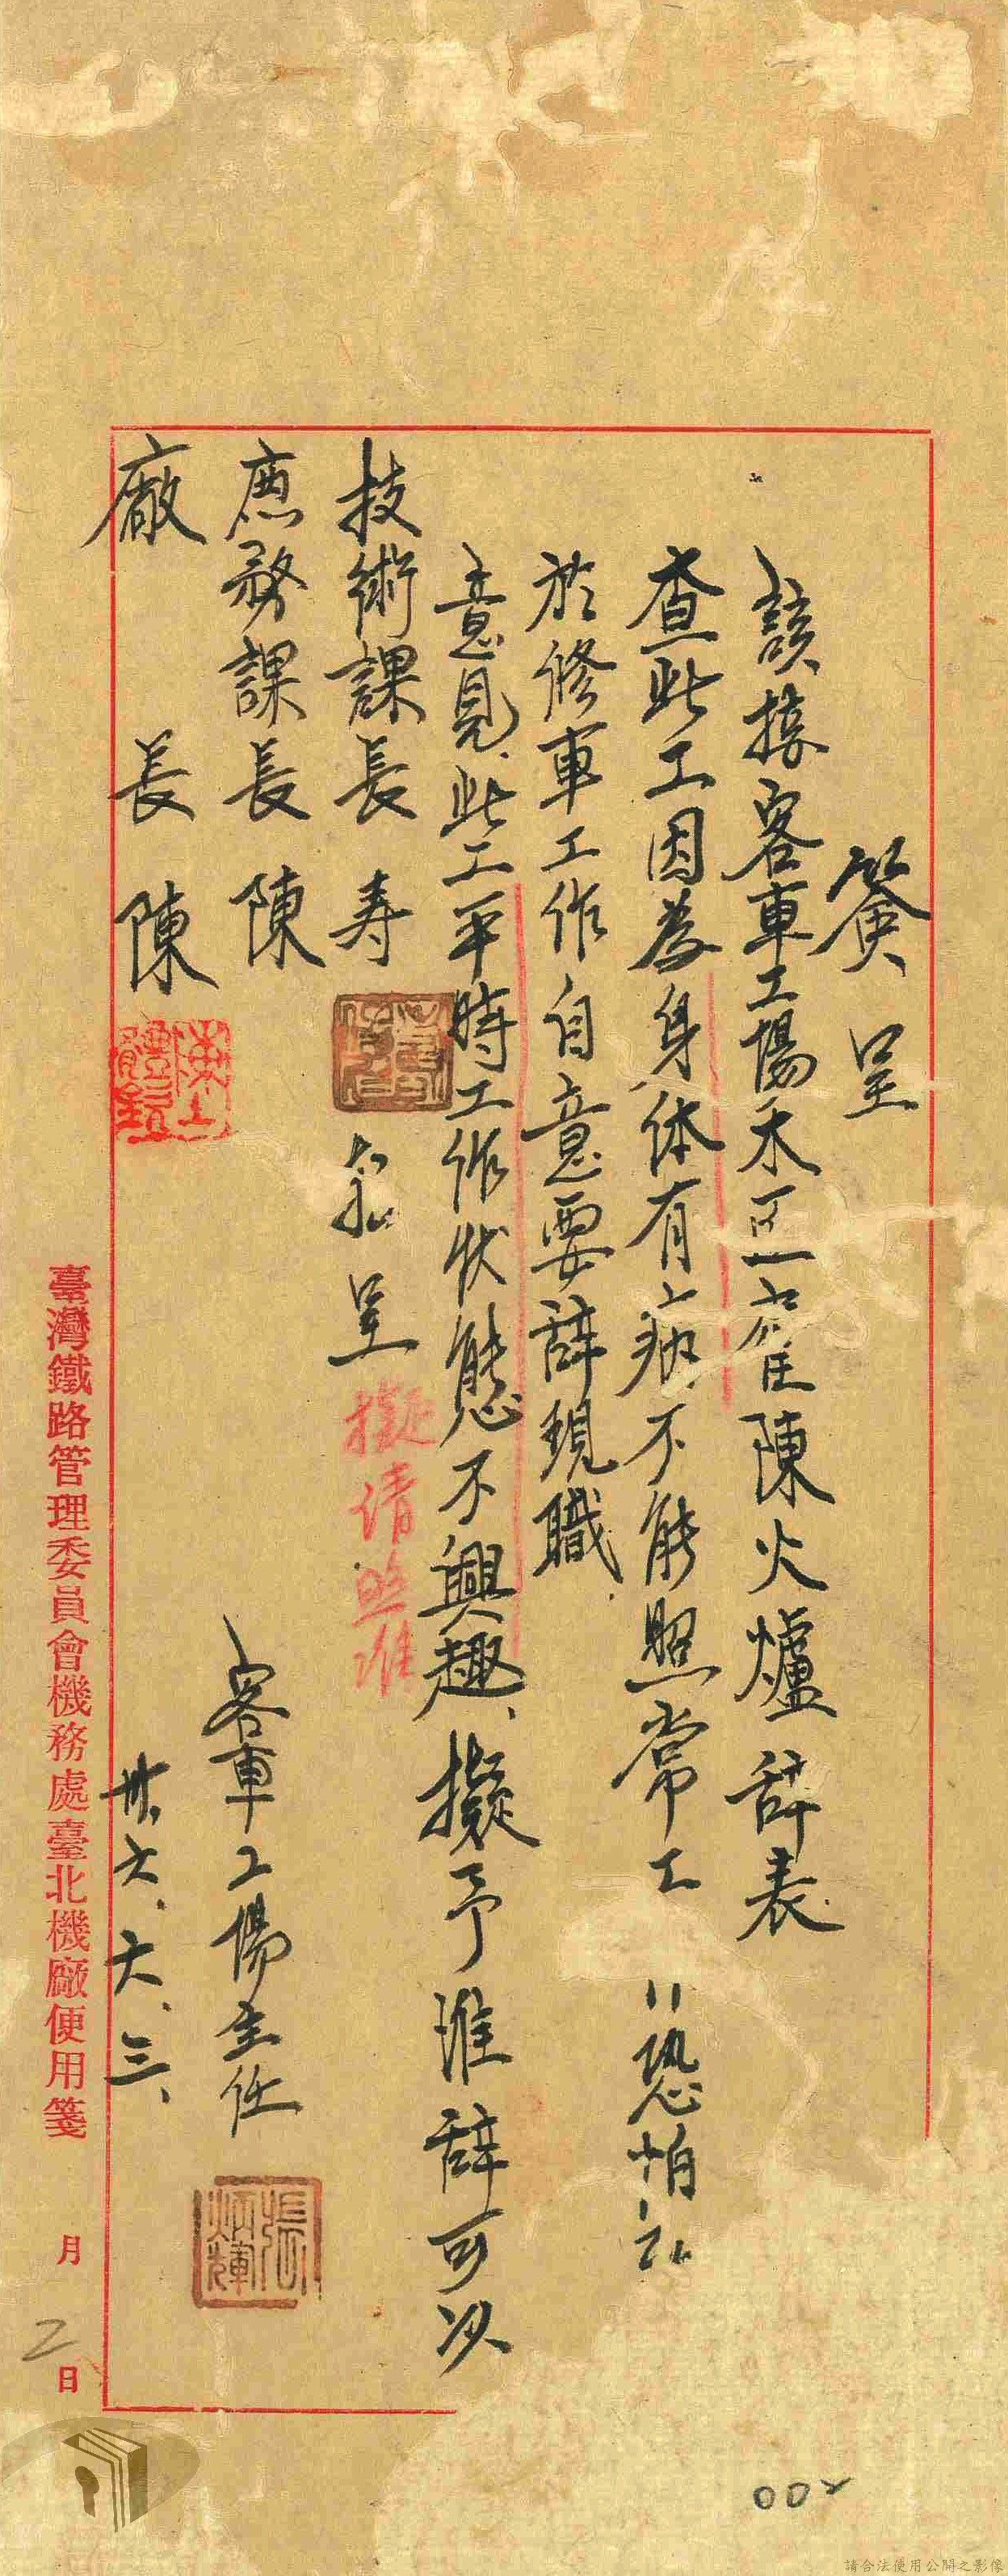 簽呈
該接客車工場木工區陳火爐辞表
查此工因為身体有病、不能照常工 恐怕礼
於修車工作自意要辞現職、
意見、此工平時工作状態不興趣、擬予准辞可以
技術課長 寿 轉呈
擬請照准
庶務課長 陳
客車工場主任
張炳輝
廠 長 陳
卅六、六、三、
臺灣鐵路管理委員會機務處臺北機廠便用箋 月 2 日
002
請合法使用公開之影像